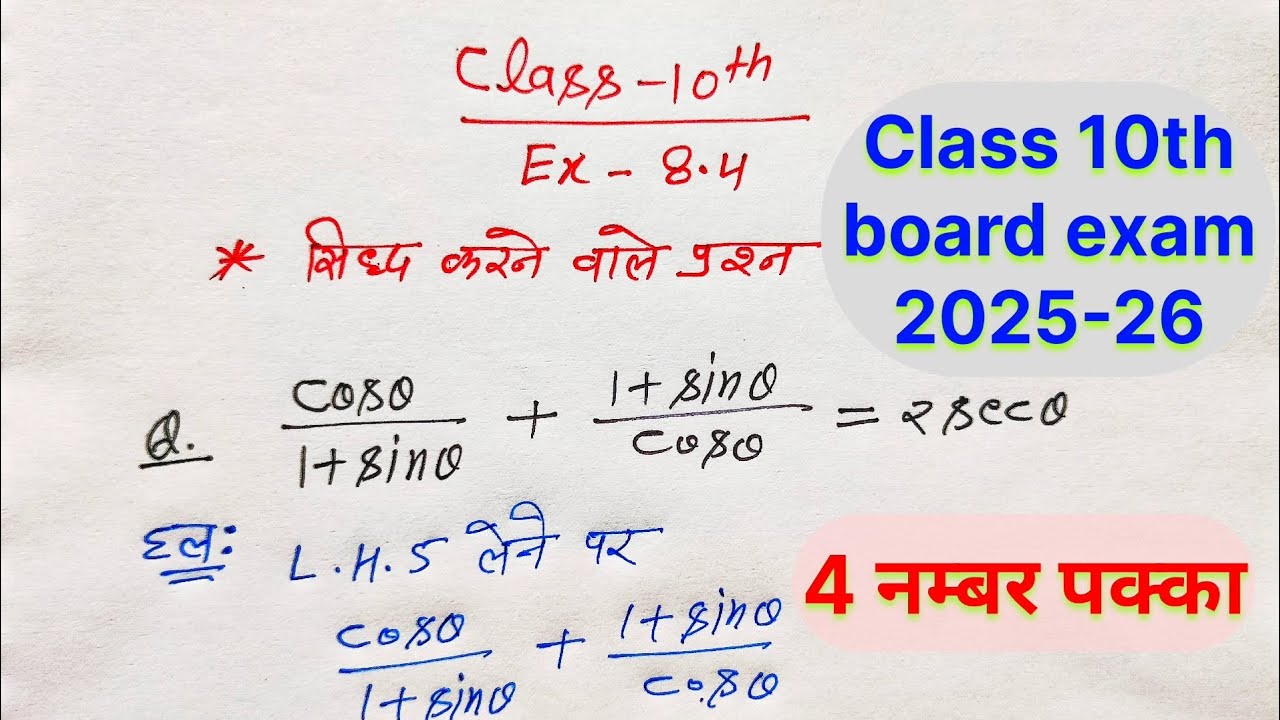 Class-10th
Ex - 8.4
* सिध्द करने वाले प्रश्न
Class 10th
board exam
2025-26
Q. cosθ/1+sinθ + 1+sinθ/cosθ = 2secθ
हल: L.H.S लेने पर
cosθ/1+sinθ + 1+sinθ/cosθ
4 नम्बर पक्का